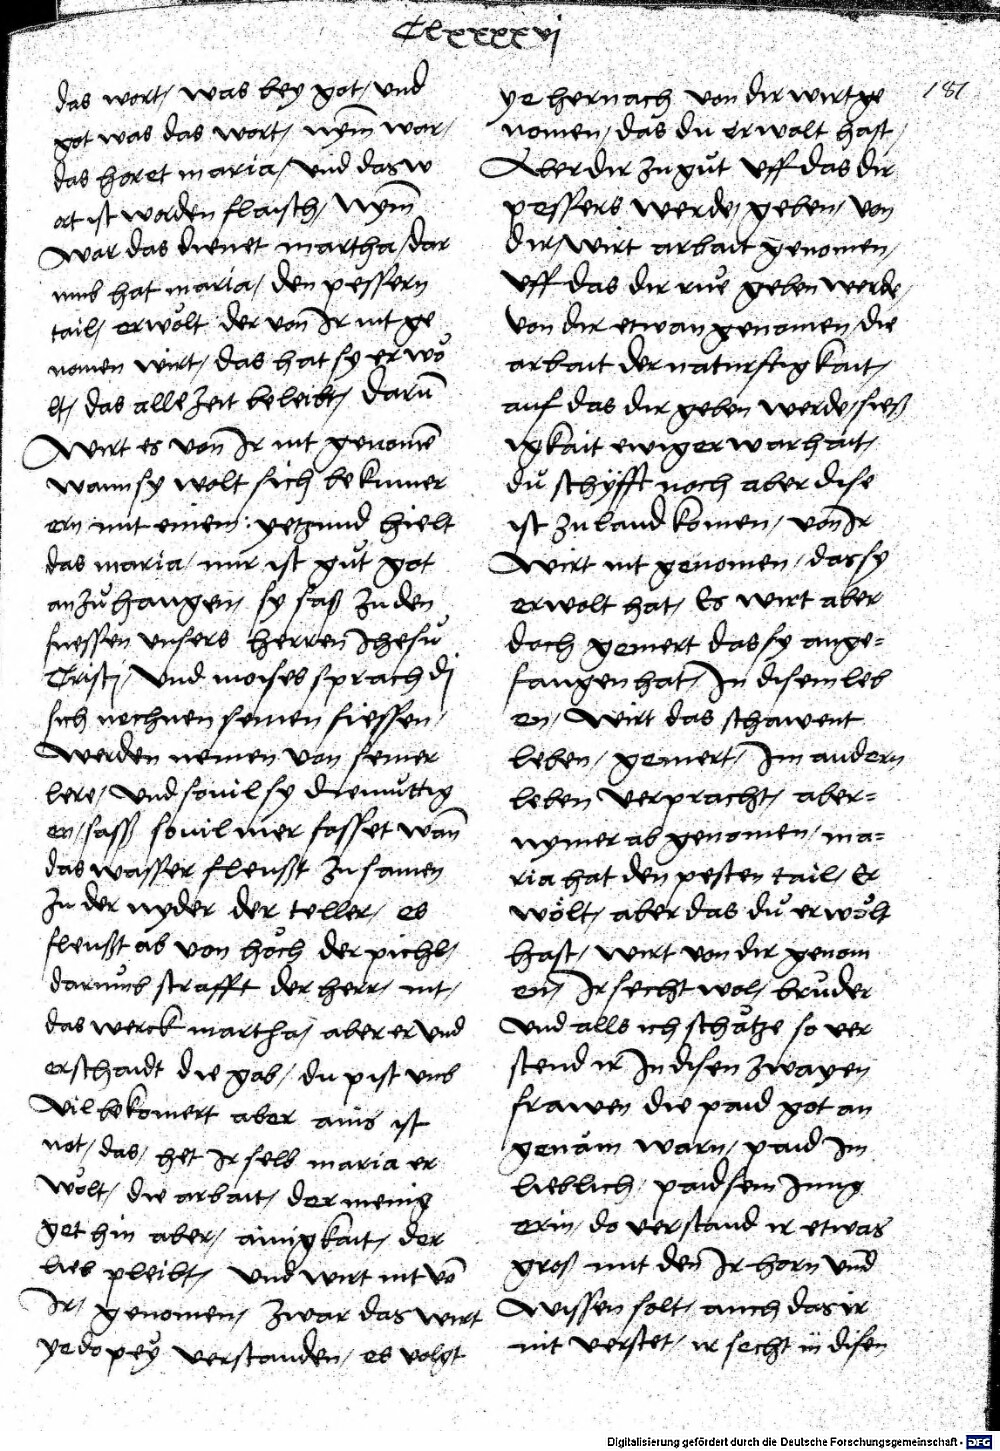 Clxxxxvj
181
das wort / was bey got / und
got was das wort / nym̄ war /
das horet maria / und das w
ort ist worden flaisch / Nym̄
war das dienet martha / dar
umb hat maria / den pessern
tail / erwölt der von Ir nit ge
nomen wirt / das hat sy erwö
lt / das alle zeit beleibt / darū
wirt es von Ir nit genomē
wann sy wolt sich bekumer
ern mit einem : yetzund hielt
das maria / mir ist gůt got
anzůhangen / sy saß zu den
fuessen unsers herren Jhesu
Cristi / und moises sprach di
sich nechnen seinen fiessen /
werden nemen von seiner
lere / und souil sy diemůttig
en / sass souil mer fasset wan̄
das wasser fleusst zusamen
In der nyder der teller / es
fleusst ab von hoch der pichl /
darumb strafft der herr / nit /
das werck martha / aber er und
erschaidt die gab / du pist umb
vil bekomert aber ains ist
not / das / het Ir selb maria er
wölt / die arbait / der menig
get hin aber / ainigkait / der
lieb pleibt / und wirt nit vō
Ir / genomen / zwar das wirt
yedopey verstanden / es volgt
ye hernach von dir wirt ge
nomen / das du erwalt hast /
Aber dir zu gůt uff das dir
pessers werde / geben / von
dir / wirt arbait genomen /
uff das dir rue geben werde /
von dir etwan genomen / die
arbait der naturftigkait /
auf das dir geben werde / siess
igkait ewiger warhait /
du schyfft noch aber dise
ist zu land komen / von Ir
wirt nit genomen / das sy
erwolt hat / Es wirt aber
doch gemert das sy ange=
fangen hat / In disem leb
en / wirt das schawent
leben / gemert / Im andern
leben verpracht / aber=
nymer ab genomen / ma=
ria hat den pesten tail / Er
wölt / aber das du erwölt
hast / wirt von dir genom
en / Ir secht wol / brůder
und alls ich schätze so ver
stend ir In disen zwayen
frawen die paid got an
genäm warn / paid Im
lieblich / paid sein Jung
erin / do verstand ir etwas
gros mit den Ir horn und
wissen solt / auch das ir
nit verstet / ir secht in disen
Digitalisierung gefördert durch die Deutsche Forschungsgemeinschaft - DFG